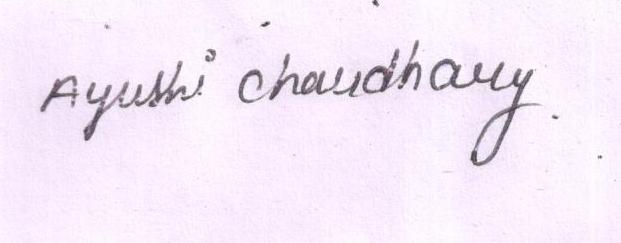 Ayushi Chaudhary